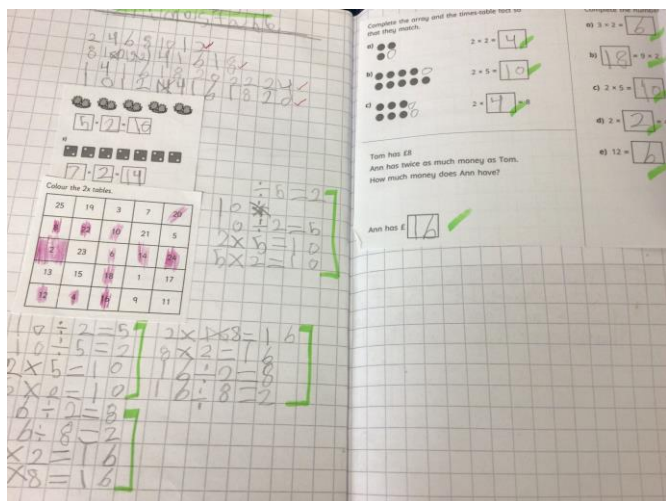 2 4 6 8 10 12
4 6 8
10 12 14 16 18 20
5 · 2 = 10
c)
7 · 2 = 14
Colour the 2x tables.
25 19 3 7 20
8 22 10 21 5
2 23 6 14 24
13 15 18 1 17
12 4 16 9 11
÷ 5 = 2
10 ÷ 2 = 5
2 × 5 = 10
5 × 2 = 10
10 ÷ 2 = 5
10 ÷ 5 = 2
2 × 5 = 10
× 2 = 10
6 ÷ 2 = 8
6 ÷ 8 = 2
× 2 = 16
× 8 = 16
2 × 8 = 16
8 × 2 = 16
16 ÷ 2 = 8
16 ÷ 8 = 2
Complete the array and the times-table fact so
that they match.
a)
2 × 2 = 4
b)
2 × 5 = 10
c)
2 × 4 = 8
Tom has £8
Ann has twice as much money as Tom.
How much money does Ann have?
Ann has £ 16
Complete the number
a) 3 × 2 = 6
b) 18 = 9 × 2
c) 2 × 5 = 10
d) 2 × 2 =
e) 12 = 6